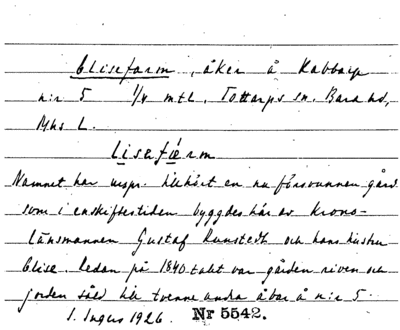 Elisefarm, åker å Kabbarp
n:r 5 1/4 mtl, Tottarps sn. Bara hd,
Mhs L.
lisefærm
Namnet har urspr. tillhört en nu försvunnen gård
som i enskiftestiden byggdes här av krono-
länsmannen Gustaf Runstedt och hans hustru
Elise. Redan på 1840 talet var gården riven och
jorden såld till tvenne andra åbor å n:r 5.
I. Ingers 1926. Nr 5542.